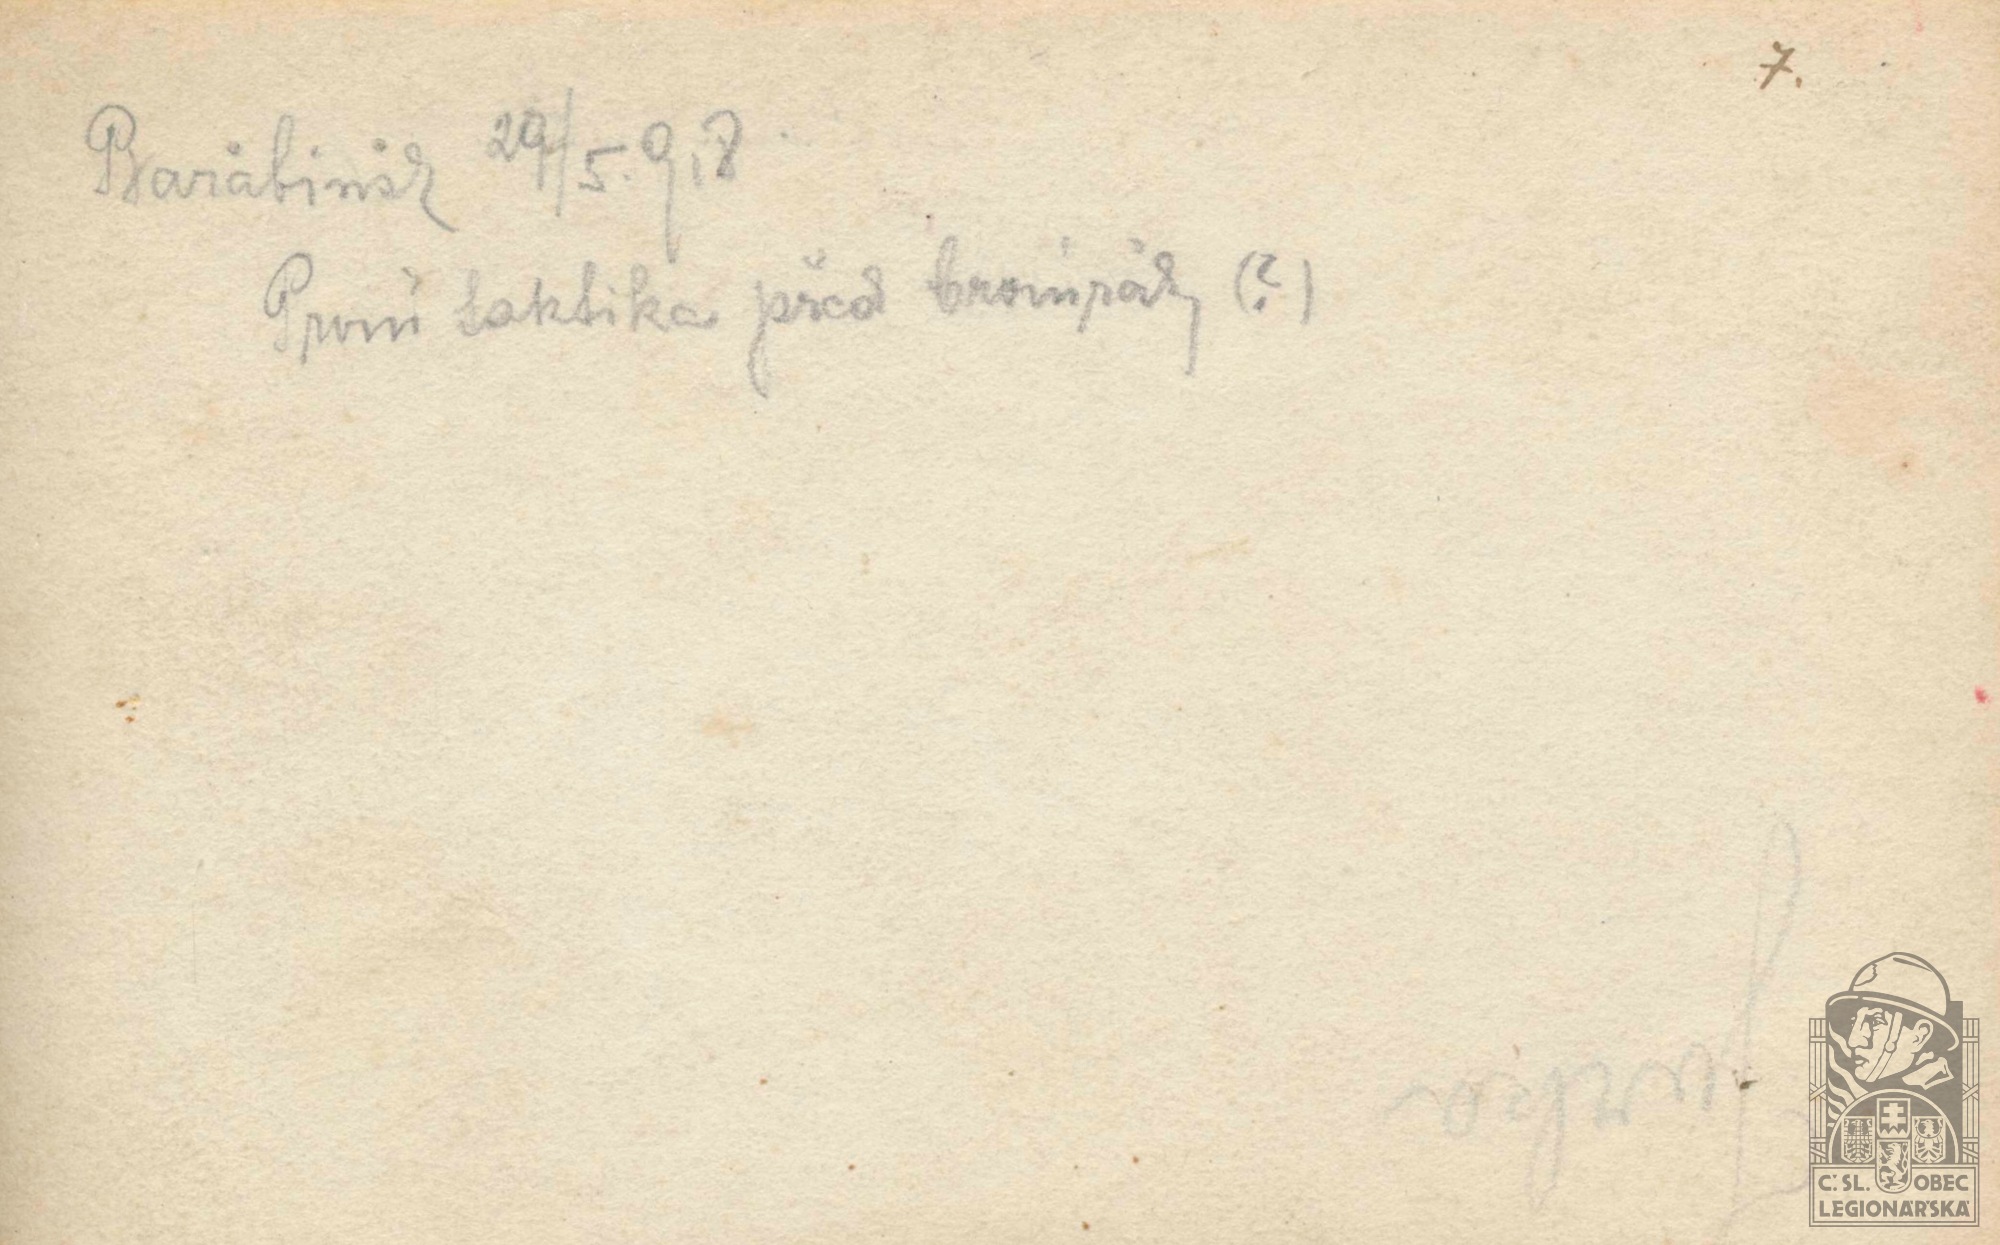 7.
Barábinsk 29/5. 918
První taktika před
(?)
Č. SL. OBEC
LEGIONÁŘSKÁ